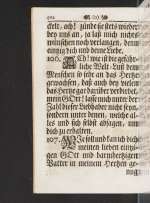 dert, ach! zünde sie stets wieder
bey uns an, so laß mich nichts
wünschen noch verlangen, denn
einzig dich und deine Liebe.
106. Ach! wie ist die gefähr-
liche Welt-Lust dem
Menschen so sehr an das Hertz
gewachsen, daß auch bey vielen
das Hertz gar darüber verdirbet,
mein GOtt! lasse mich unter der
Zahl dieser Liebhaber nicht seyn,
sondern unter denen, welche al-
les und sich selbst absagen, um
dich zu erhalten.
107. Wie soll und kan ich dich
meinen lieben eintzi-
gen GOtt und barmhertzigen
Vatter in meinem Hertzen ge-
nug